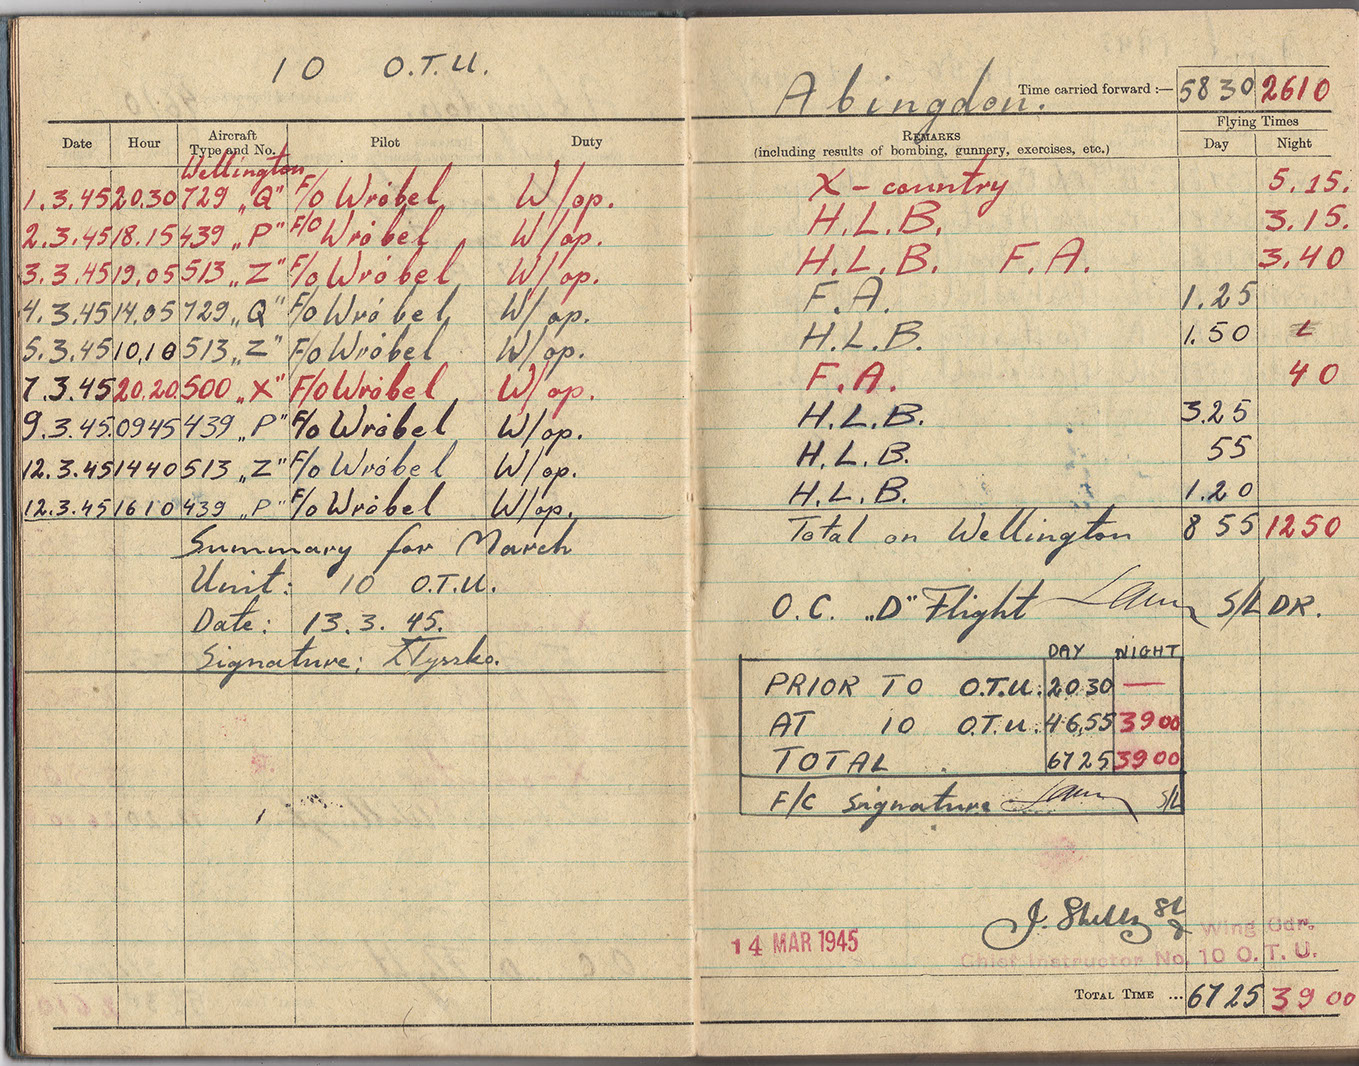 10 O.T.U.
Date Hour Aircraft Type and No. Pilot Duty
Wellington
1.3.45 20.30 729 „Q" F/O Wróbel W/op.
2.3.45 18.15 439 „P" F/O Wróbel W/op.
3.3.45 19.05 513 „Z" F/o Wróbel W/op.
4.3.45 14.05 729 „Q" F/o Wróbel W/op.
5.3.45 10,10 513 „Z" F/o Wróbel W/op.
7.3.45 20.20 500 „X" F/o Wróbel W/op.
9.3.45. 0945 439 „P" F/o Wróbel W/op.
12.3.45 1440 513 „Z" F/o Wróbel W/op.
12.3.45 1610 439 „P" F/o Wróbel W/op.
Summary for March
Unit: 10 O.T.U.
Date: 13.3.45.
Signature: Tyszko.
Abingdon. Time carried forward :— 58 30 2610
Remarks (including results of bombing, gunnery, exercises, etc.) Flying Times Day Night
X - country 5.15.
H.L.B. 3.15.
H.L.B. F.A. 3.40
F.A. 1.25
H.L.B. 1.50
F.A. 40
H.L.B. 3.25
H.L.B. 55
H.L.B. 1.20
Total on Wellington 8 55 1250
O.C. „D" Flight S/LDR.
DAY NIGHT
PRIOR TO O.T.U. 20.30 —
AT 10 O.T.U. 46,55 39 00
TOTAL 67 25 39 00
F/C Signature S/L
14 MAR 1945
Wing Cdr.
Chief Instructor No. 10 O.T.U.
Total Time ... 67 25 39 00